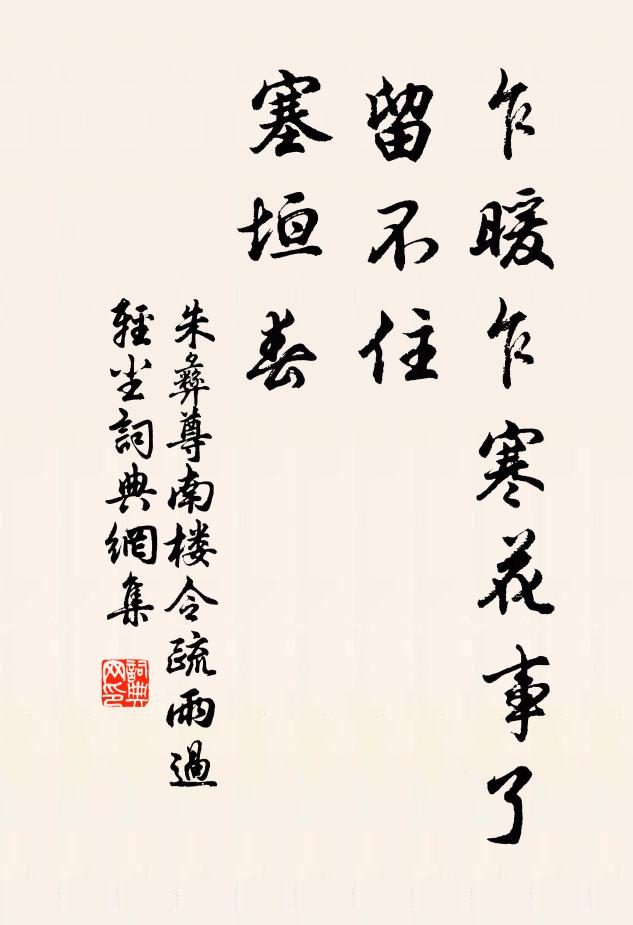 乍暖乍寒花事了
留不住
塞垣春
朱彝尊南楼令疏雨過
輕尘詞典網集
詞典网印